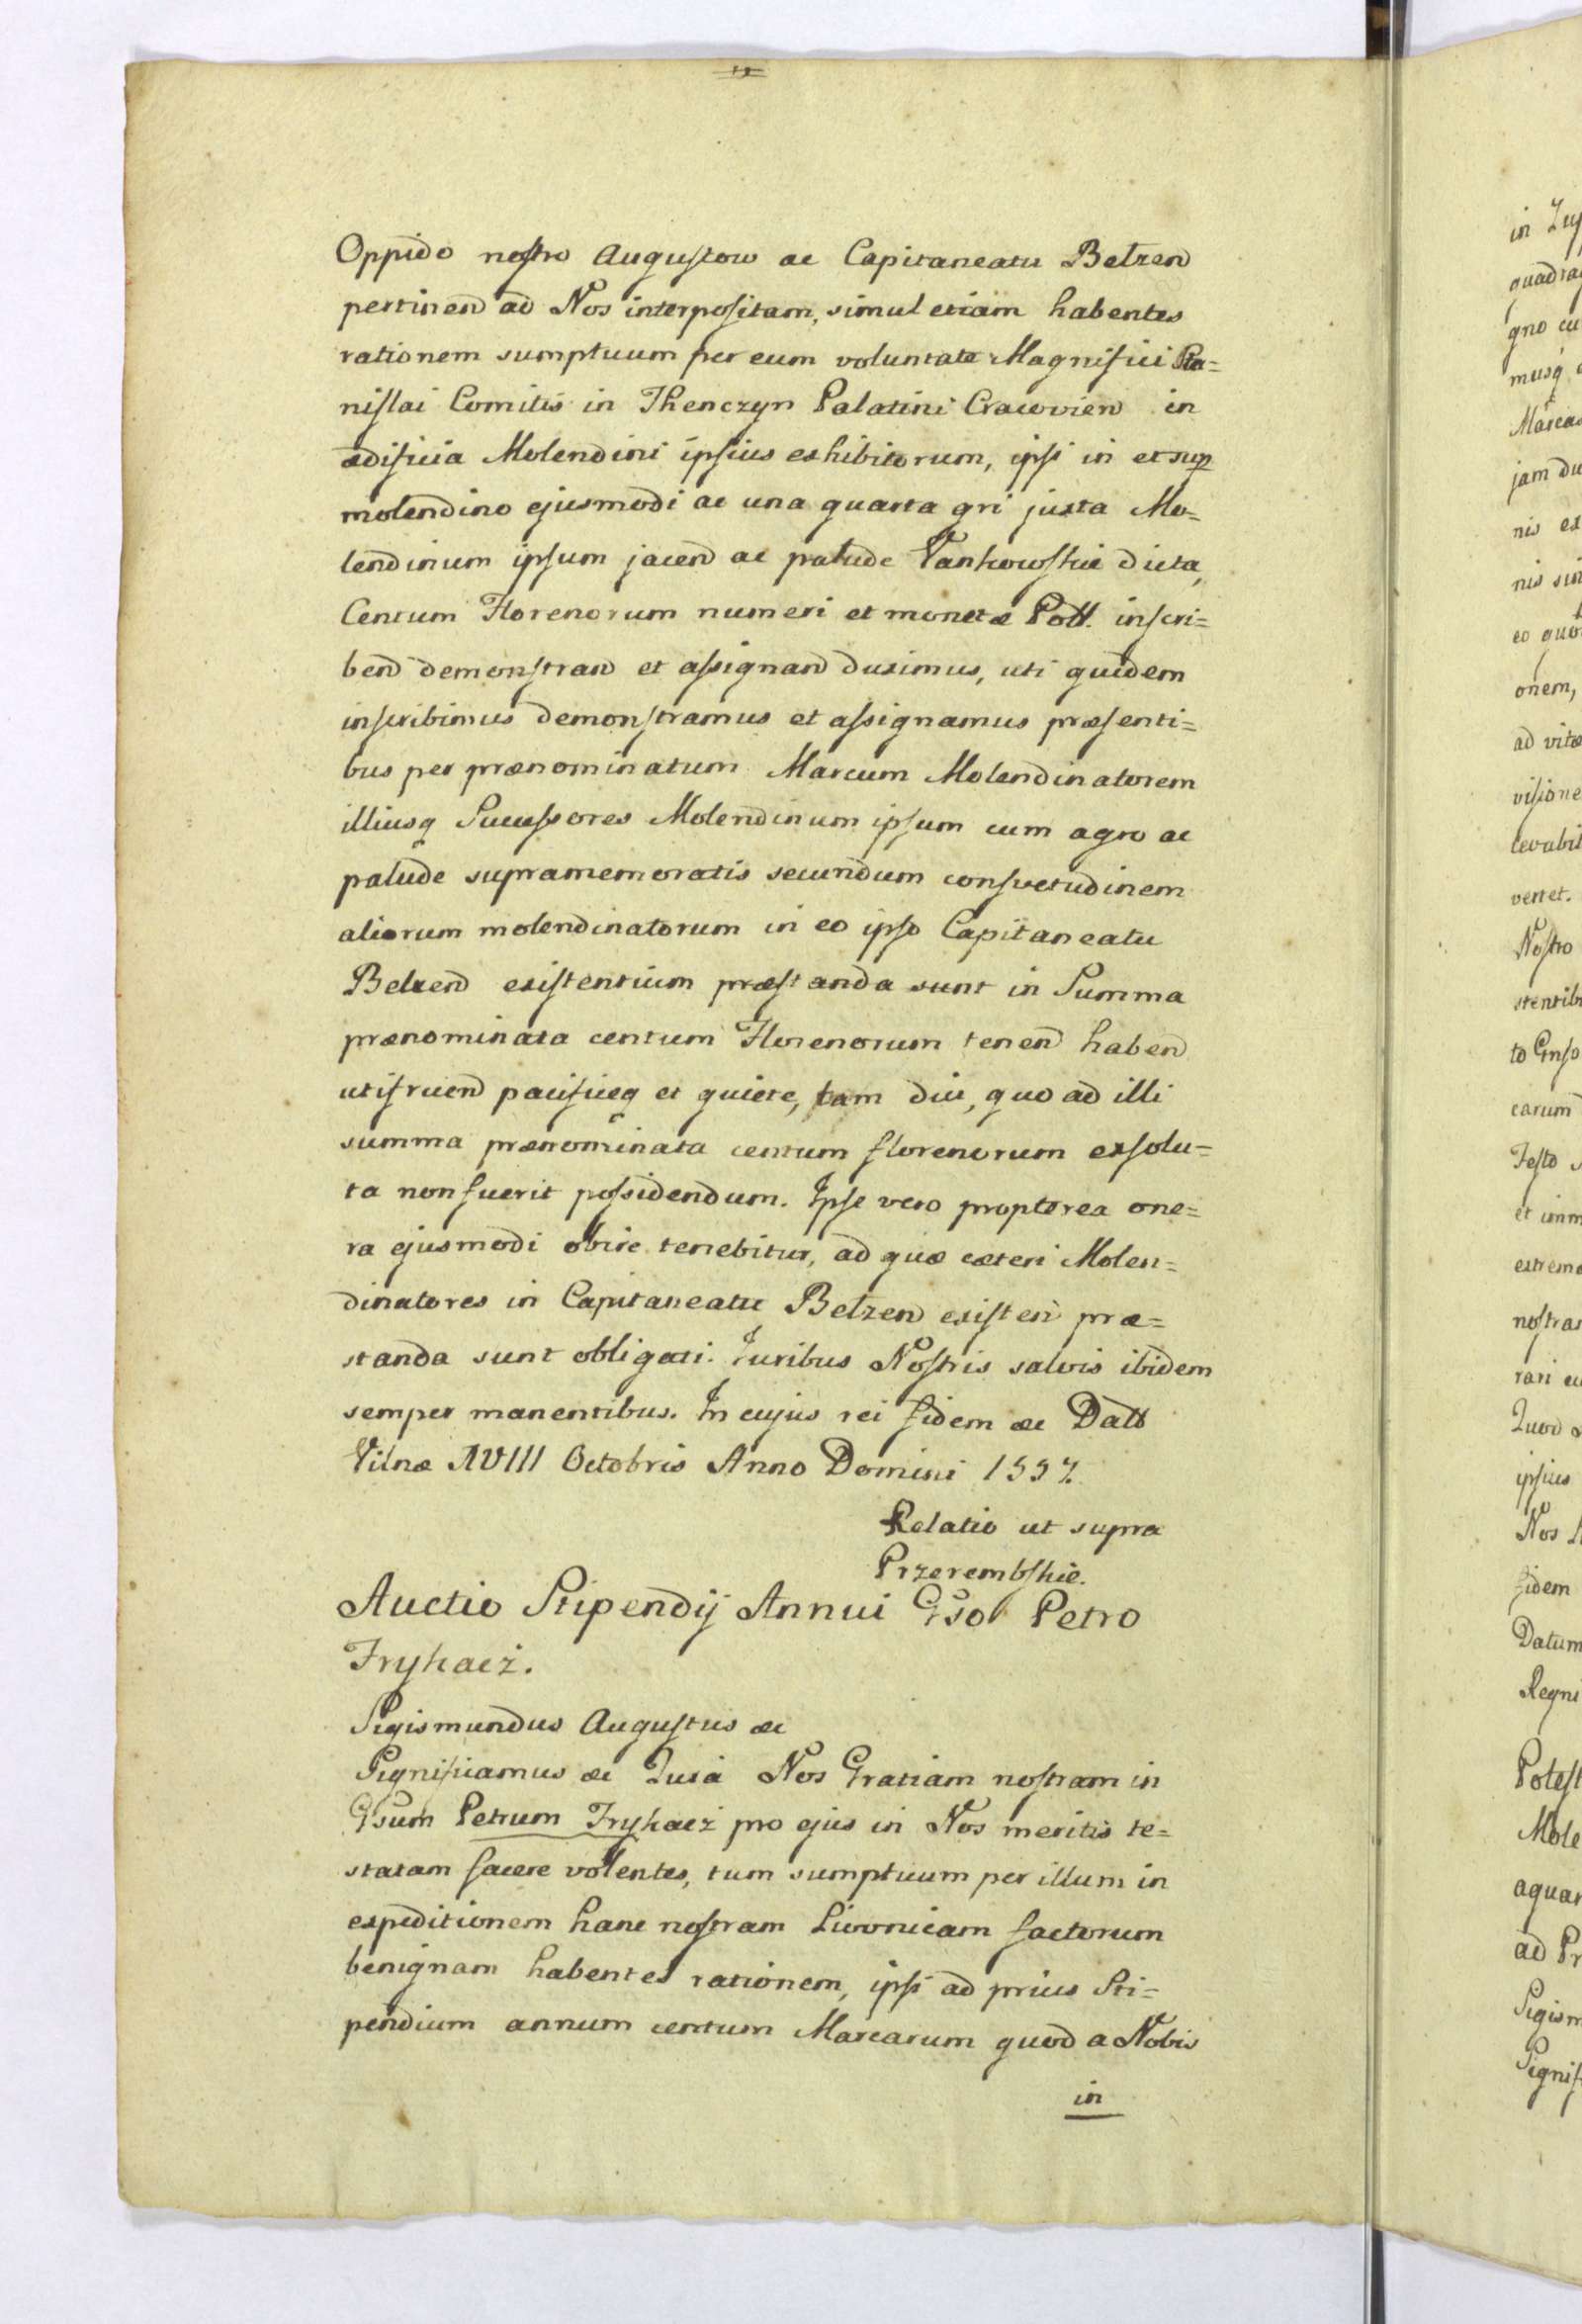 Oppido nostro Augustow ac Capitaneatu Belzen
pertinen ad Nos interpositam, simul etiam habentes
rationem sumptuum per eum voluntate Magnifici Sta=
nislai Comitis in Thenczyn Palatini Cracovien in
ædificia Molendini ipsius exhibitorum, ipsi in et sup
molendino ejusmodi ac una quarta gri juxta Mo=
lendinum ipsum jacen ac palude Vankowskie dicta,
Centum Florenorum numeri et monetæ Poll. inscri=
ben demonstran et assignan duximus, uti quidem
inscribimus demonstramus et assignamus præsenti=
bus per prænominatum Marcum Molendinatorem
illiusq Successores Molendinum ipsum cum agro ac
palude supramemoratis secundum consvetudinem
aliorum molendinatorum in eo ipso Capitaneatu
Belzen existentium præstanda sunt in Summa
prænominata centum Florenorum tenen haben
utifruen pacificeq et quiete, tam diu, quo ad illi
summa prænominata centum florenorum exsolu=
ta non fuerit possidendum. Ipse vero propterea one=
ra ejusmodi obire tenebitur, ad quæ cæteri Molen=
dinatores in Capitaneatu Belzen existen præ=
standa sunt obligati. Juribus Nostris salvis ibidem
semper manentibus. In cujus rei fidem &c Datt
Vilnæ XVIII Octobris Anno Domini 1557
Relatio ut supra
Przerembskie.
Auctio Stipendij Annui Gso Petro
Frykacz.
Sigismundus Augustus &c
Significamus &c Quia Nos Gratiam nostram in
Gsum Petrum Frykacz pro ejus in Nos meritis te=
statam facere volentes, tum sumptuum per illum in
expeditionem hanc nostram Livonicam factorum
benignam habentes rationem, ipsi ad prius Sti=
pendium annum centum Marcarum quod a Nobis
in